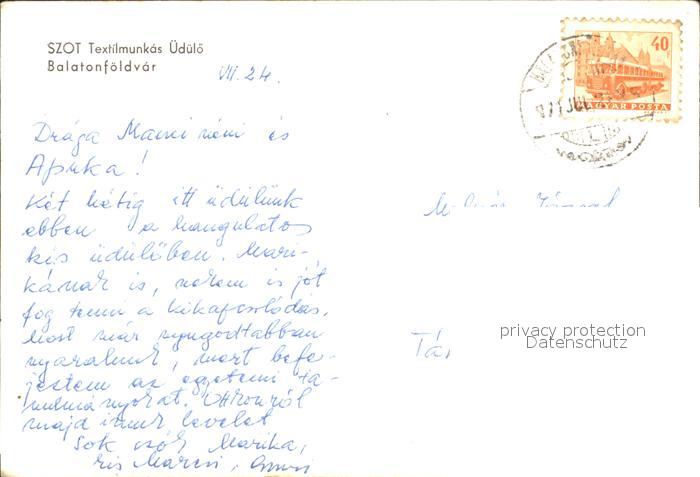 SZOT Textilmunkás Üdülő
Balatonföldvár
VII. 24.
40
MAGYAR POSTA
Drága Mami néni és
Apuka!
Két hétig itt üdülünk
ebben a hangulatos
kis üdülőben. Mari-
kának is, nekem is jót
fog tenni a kikapcsolódás.
Most már nyugodtabban
nyaralunk, mert befe-
jeztem az egyetemi ta-
nulmányokat. Otthonról
majd írunk levelet
Sok csók Marika,
kis Marcsi,
Tá
privacy protection
Datenschutz